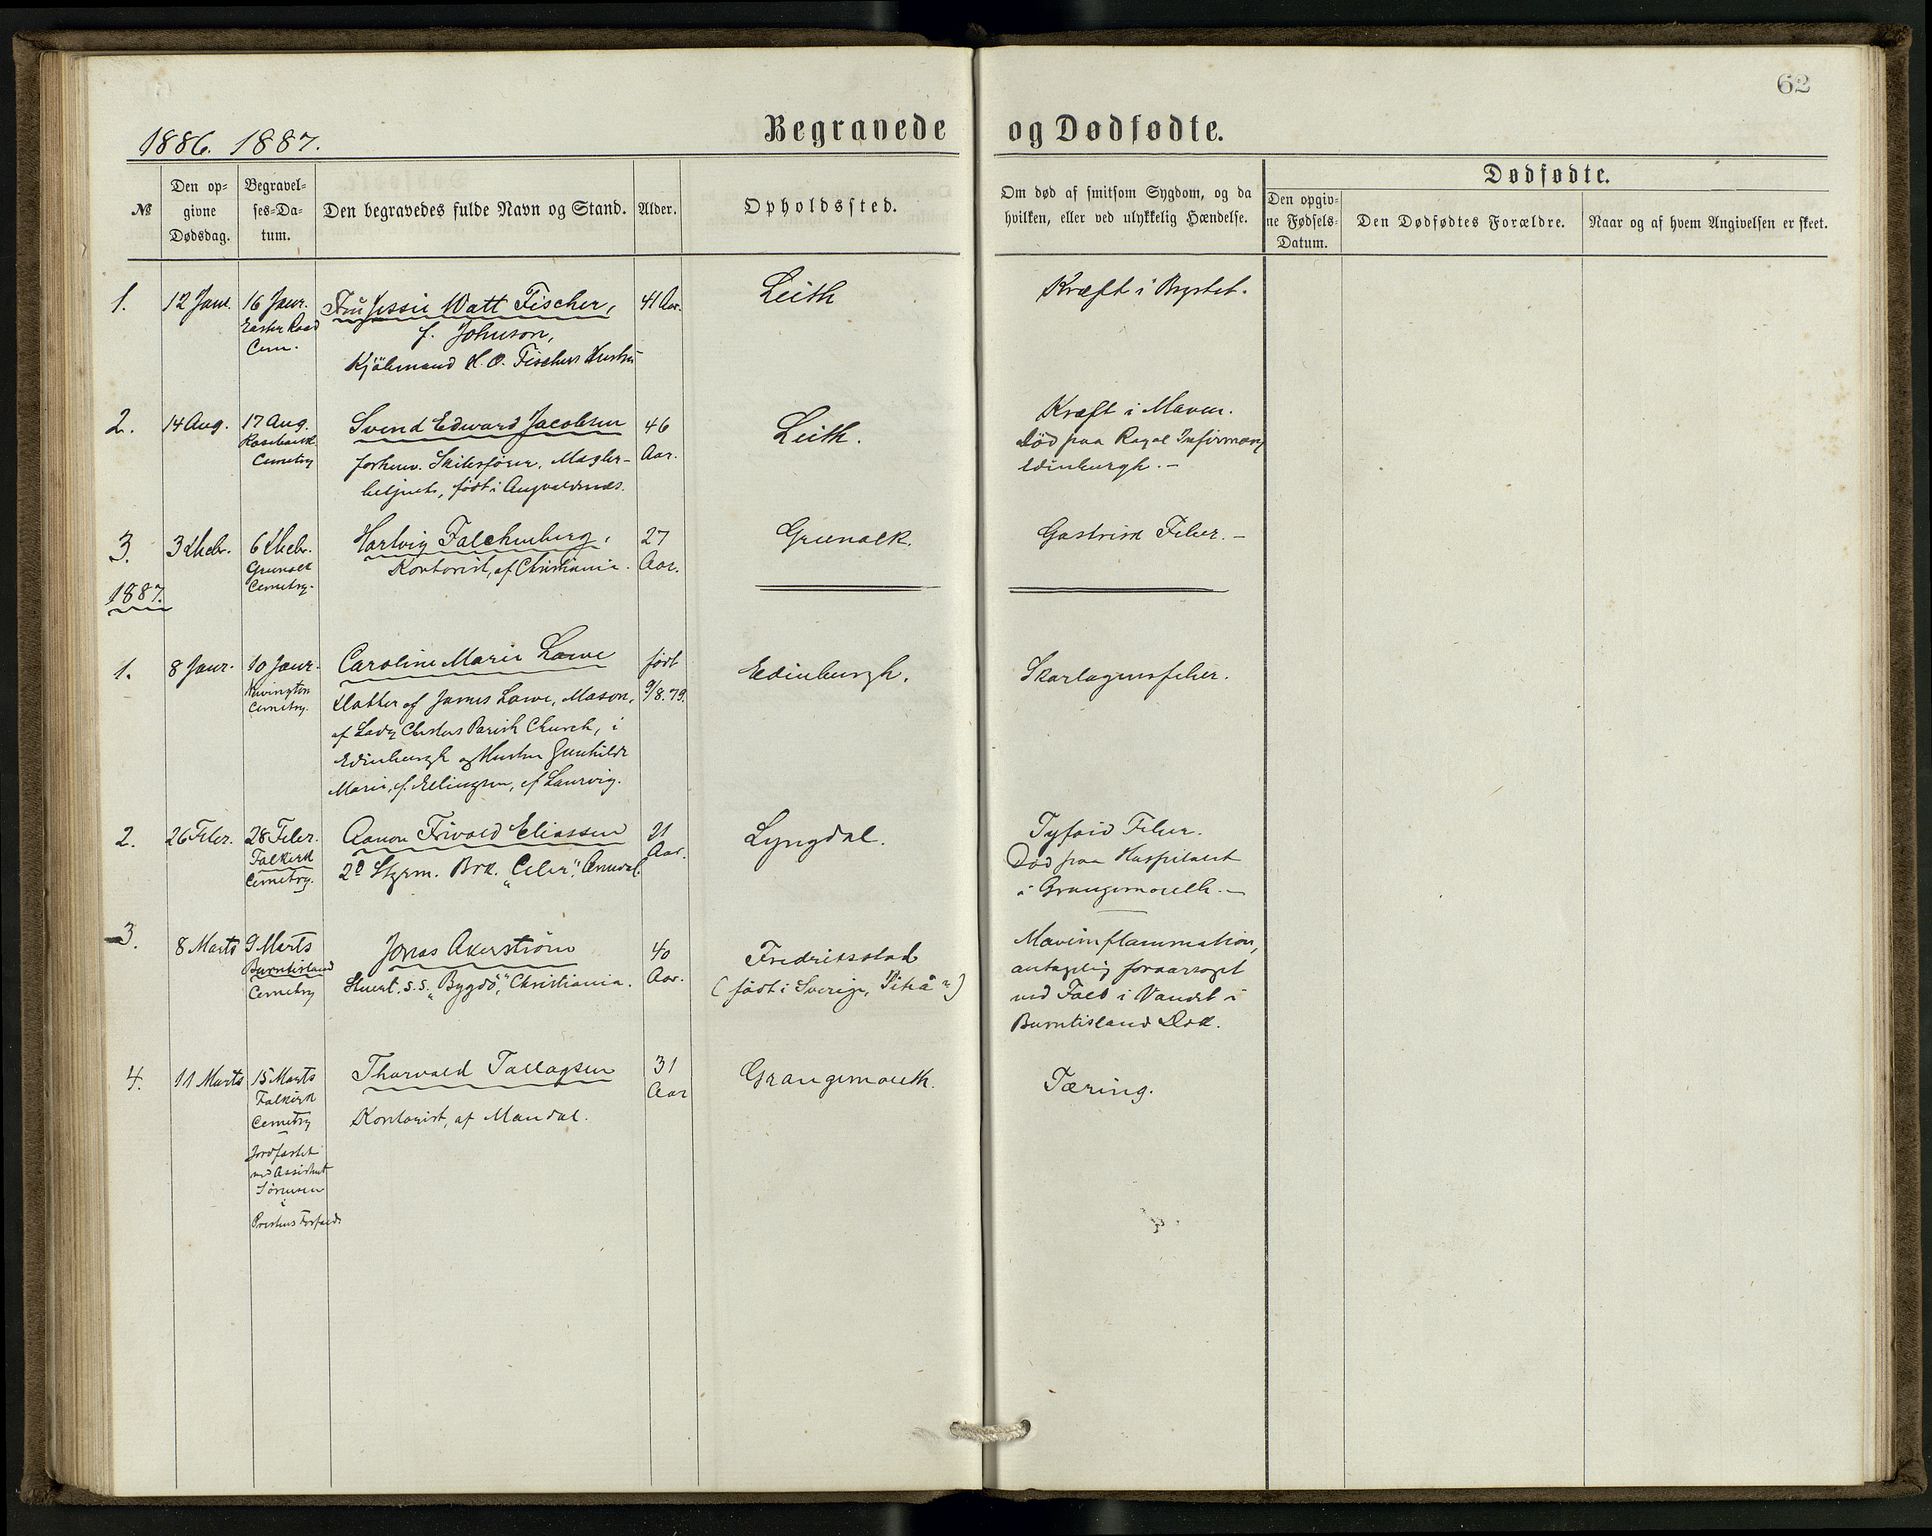 62
1886. 1887.
Begravede og Dødfødte.
№
Den op-
givne
Dødsdag.
Begravel-
ses-Da-
tum.
Den begravedes fulde Navn og Stand.
Alder.
Opholdssted.
Om død af smitsom Sygdom, og da
hvilken, eller ved ulykkelig Hændelse.
Dødfødte.
Den opgiv-
ne Fødsels-
Datum.
Den Dødfødtes Forældre.
Naar og af hvem Angivelsen er skeet.
1.
12 Janr.
16 Janr.
Easter Road
Cem.
Fru Jessie Watt Fischer,
f. Johnson,
Kjöbmand H. O. Fischers Hustru
41 Aar.
Leith
Kræft i Brystet.
2.
14 Aug.
17 Aug.
Rosebank
Cemetry
Svend Edward Jacobsen
forhenv. Skibsfører, Mægler-
betjent, født i Augvaldsnæs.
46
Aar.
Leith.
Kræft i Maven.
Död paa Royal Infirmary
Edinburgh. -
3.
3 Decbr.
6 Decbr.
Greenock
Cemetry.
Hartvig Falchenberg,
Kontorist, af Christiania.
27
Aar.
Greenock.
Gastrisk Feber. -
1887.
1.
8 Janr.
10 Janr.
Newington
Cemetry.
Caroline Marie Lowe
Datter af James Lowe, Mason,
af Lady Chesters Parish Church, i
Edinburgh og Hustru Gunhilde
Marie, f. Ellingsen, af Laurvig.
født
9/8. 79.
Edinburgh.
Skarlagensfeber.
2.
26 Febr.
28 Febr.
Falkirk
Cemetry.
Aanon Frivold Eliassen
2d Styrm. Brk. "Celer", Arendal.
21
Aar.
Lyngdal.
Tyfoid Feber.
Död paa Hospitalet
i Grangemouth. -
3.
8 Marts
9 Marts
Burntisland
Cemetry
Jonas Akerström
Stuert. S.S. "Bygdö", Christiania.
40
Aar.
Fredriksstad
(født i Sverige, "Piteå")
Maveinflammation,
antagelig foraarsaget
ved Fald i Vandet i
Burntisland Dok.
4.
11 Marts
15 Marts
Falkirk
Cemetry
Jordfæstet
ved Assistent
Sörensen
i
Prestens Forfald
Thorvald Tallagsen
Kontorist, af Mandal.
31
Aar
Grangemouth.
Tæring.